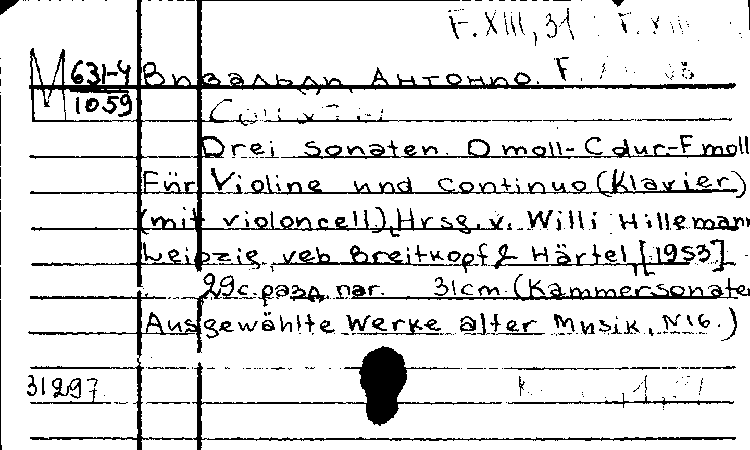 F.XIII,31
M 631-4 Вивальди, Антонио. F.
1059
Drei Sonaten. D moll-C dur-F moll
Für Violine und Continuo (Klavier)
(mit violoncell). Hrsg. v. Willi Hillemann
Leipzig, veb Breitkopf & Härtel, [1953]
29 с. разд. паг. 31cm. (Kammersonaten
Ausgewählte Werke alter Musik, N16.)
31297